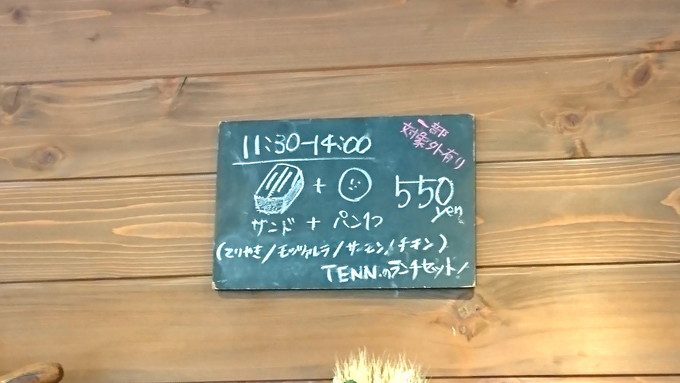 11:30-14:00
一部
対象外有り
+
550
yen
サンド + パン1つ
(てりやき/モッツァレラ/サーモン/チキン)
TENN.のランチセット!